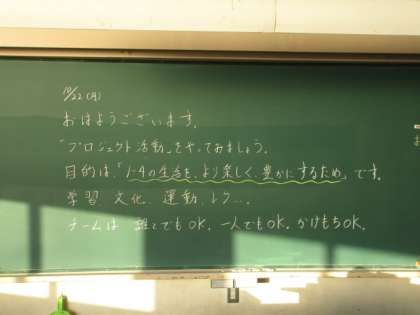 10/22(月)
おはようございます。
"プロジェクト活動"をやっておきましょう。
目的は、「1-4の生活を、より楽しく、豊かにするため」です。
学習、文化、運動、より…。
チームは 誰とでもOK。一人でもOK。かけもちOK。